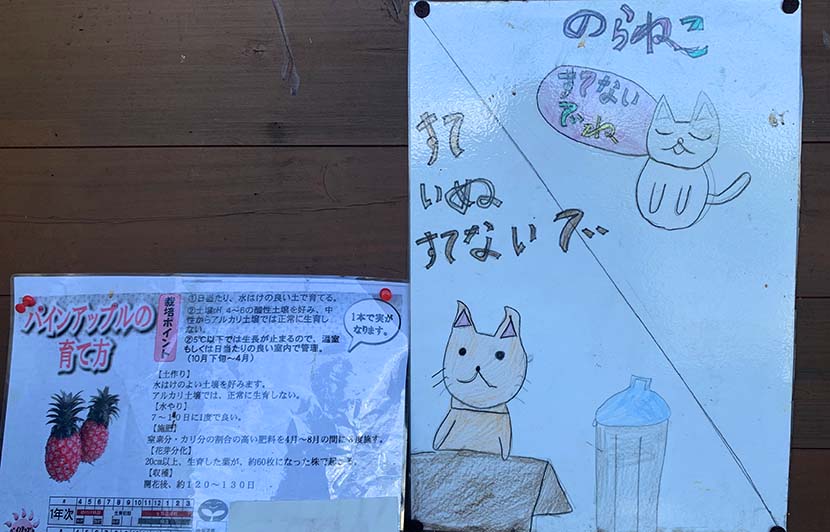 のらねこ
すてない
でね
すて
いぬ
すてないで
パインアップルの
育て方
栽培ポイント
①日当たり、水はけの良い土で育てる。
②土壌pH 4～6の酸性土壌を好み、中
性からアルカリ土壌では正常に生育し
ない。
②5℃以下では生長が止まるので、温室
もしくは日当たりの良い室内で管理。
（10月下旬～4月）
1本で実が
なります。
【土作り】
水はけのよい土壌を好みます。
アルカリ土壌では、正常に生育しない。
【水やり】
7～10日に1度で良い。
【施肥】
窒素分・カリ分の割合の高い肥料を4月～8月の間に 度施す。
【花芽分化】
20cm以上、生育した葉が、約60枚になった株で起こる。
【収穫】
開花後、約120～130日
4 5 6 7 8 9 10 11 12 1 2 3
1年次